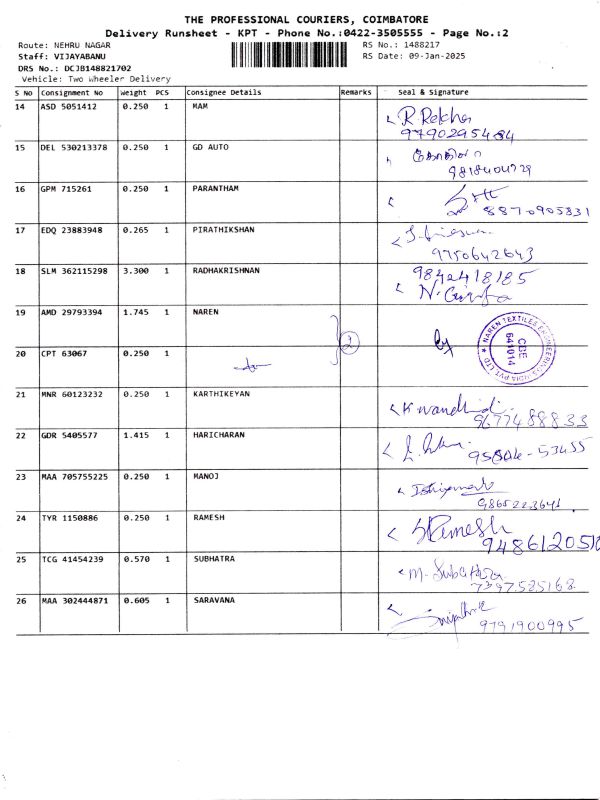 THE PROFESSIONAL COURIERS, COIMBATORE
Delivery Runsheet - KPT - Phone No.:0422-3505555 - Page No.:2
Route: NEHRU NAGAR RS No.: 1488217
Staff: VIJAYABANU RS Date: 09-Jan-2025
DRS No.: DCJB148821702
Vehicle: Two Wheeler Delivery
S No Consignment No Weight PCS Consignee Details Remarks Seal & Signature
14 ASD 5051412 0.250 1 MAM
R. Rekha
9790295484
15 DEL 530213378 0.250 1 GD AUTO
9818404729
16 GPM 715261 0.250 1 PARANTHAM
8870905831
17 EDQ 23883948 0.265 1 PIRATHIKSHAN
9750642643
18 SLM 362115298 3.300 1 RADHAKRISHNAN
9842418185
19 AMD 29793394 1.745 1 NAREN
2
NAREN TEXTILES ENGINEERING INDIA PVT LTD
CBE
641014
20 CPT 63067 0.250 1
21 MNR 60123232 0.250 1 KARTHIKEYAN
9677488833
22 GDR 5405577 1.415 1 HARICHARAN
53455
23 MAA 705755225 0.250 1 MANOJ
9865223641
24 TYR 1150886 0.250 1 RAMESH
S Ramesh
948612051
25 TCG 41454239 0.570 1 SUBHATRA
M. Subathra
7397525168
26 MAA 302444871 0.605 1 SARAVANA
9791900995